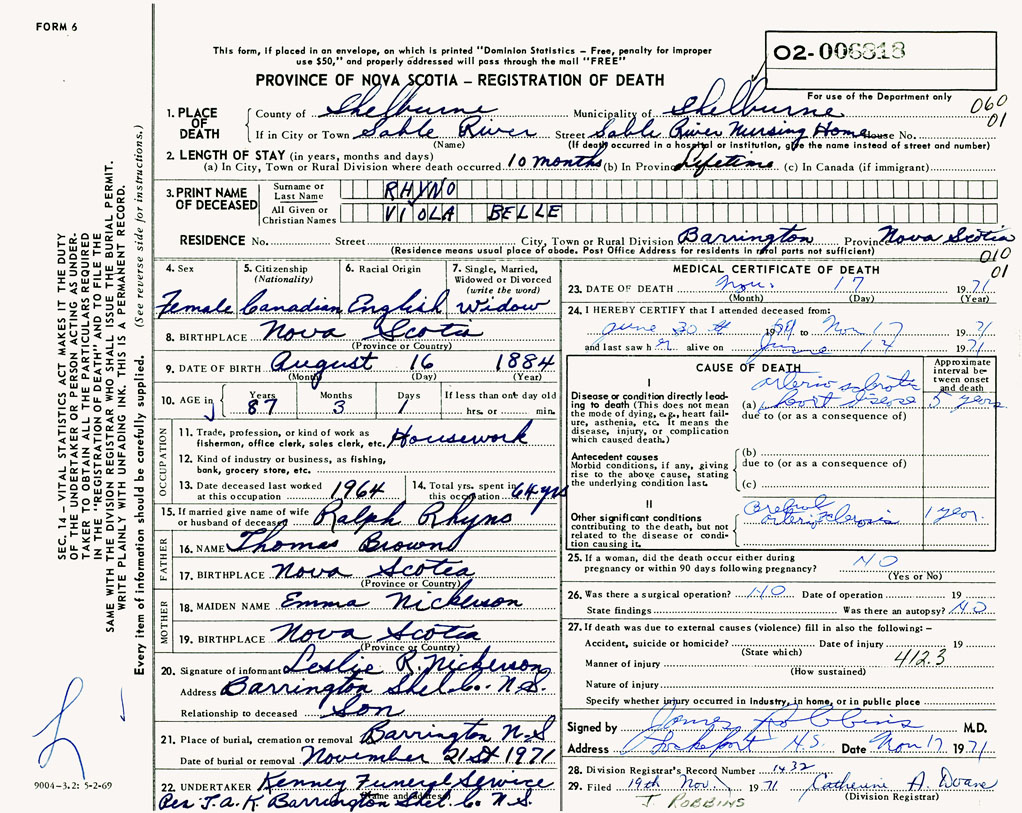 FORM 6
This form, if placed in an envelope, on which is printed "Dominion Statistics – Free, penalty for improper
use $50," and properly addressed will pass through the mail "FREE"
PROVINCE OF NOVA SCOTIA – REGISTRATION OF DEATH
O2-006818
For use of the Department only
060
01
1. PLACE OF DEATH
County of Shelburne Municipality of Shelburne
If in City or Town Sable River Street Sable River Nursing Home House No.
(Name) (If death occurred in a hospital or institution, give the name instead of street and number)
2. LENGTH OF STAY (in years, months and days)
(a) In City, Town or Rural Division where death occurred 10 months (b) In Province Lifetime (c) In Canada (if immigrant)
3. PRINT NAME OF DECEASED
Surname or Last Name RHYNO
All Given or Christian Names VIOLA BELLE
RESIDENCE No. Street City, Town or Rural Division Barrington Province Nova Scotia
(Residence means usual place of abode. Post Office Address for residents in rural parts not sufficient)
010
01
4. Sex 5. Citizenship (Nationality) 6. Racial Origin 7. Single, Married, Widowed or Divorced (write the word)
Female Canadian English Widow
8. BIRTHPLACE Nova Scotia
(Province or Country)
9. DATE OF BIRTH August 16 1884
(Month) (Day) (Year)
10. AGE in Years Months Days If less than one day old
87 3 1 hrs. or min.
OCCUPATION
11. Trade, profession, or kind of work as
fisherman, office clerk, sales clerk, etc. Housework
12. Kind of industry or business, as fishing,
bank, grocery store, etc.
13. Date deceased last worked at this occupation 1964
14. Total yrs. spent in this occupation 64 yrs
15. If married give name of wife
or husband of deceased Ralph Rhyno
FATHER
16. NAME Thomas Brown
17. BIRTHPLACE Nova Scotia
(Province or Country)
MOTHER
18. MAIDEN NAME Emma Nickerson
19. BIRTHPLACE Nova Scotia
(Province or Country)
20. Signature of informant Leslie R. Nickerson
Address Barrington Shel. Co. N.S.
Relationship to deceased Son
21. Place of burial, cremation or removal Barrington N.S
Date of burial or removal November 21st 1971
22. UNDERTAKER Kenney Funeral Service
(Name and address)
Per J.A.K. Barrington Shel. Co. N.S.
MEDICAL CERTIFICATE OF DEATH
23. DATE OF DEATH Nov. 17 1971
(Month) (Day) (Year)
24. I HEREBY CERTIFY that I attended deceased from:
June 30th 19 to Nov 17 1971
and last saw her alive on June 17 1971
CAUSE OF DEATH
Approximate interval between onset and death
I
Disease or condition directly leading to death (This does not mean the mode of dying, e.g., heart failure, asthenia, etc. It means the disease, injury, or complication which caused death.)
arterio sclerotic
(a) heart disease 5 years
due to (or as a consequence of)
Antecedent causes
Morbid conditions, if any, giving rise to the above cause, stating the underlying condition last.
(b)
due to (or as a consequence of)
(c)
II
Other significant conditions
contributing to the death, but not related to the disease or condition causing it.
Cerebral
arteriosclerosis 1 year.
25. If a woman, did the death occur either during
pregnancy or within 90 days following pregnancy? NO
(Yes or No)
26. Was there a surgical operation? NO Date of operation 19
State findings Was there an autopsy? NO
27. If death was due to external causes (violence) fill in also the following: –
Accident, suicide or homicide? Date of injury 19
(State which)
412.3
Manner of injury
(How sustained)
Nature of injury
Specify whether injury occurred in industry, in home, or in public place
Signed by James Robbins M.D.
Address Lockeport N.S. Date Nov 17 1971
28. Division Registrar's Record Number 1432
29. Filed 19th Nov. 1971 Catherine A. Doane
(Division Registrar)
J ROBBINS
SEC. 14 – VITAL STATISTICS ACT MAKES IT THE DUTY
OF THE UNDERTAKER OR PERSON ACTING AS UNDER-
TAKER TO OBTAIN ALL THE PARTICULARS REQUIRED
IN THE "REGISTRATION OF DEATH" AND TO FILE THE
SAME WITH THE DIVISION REGISTRAR WHO SHALL ISSUE THE BURIAL PERMIT.
WRITE PLAINLY WITH UNFADING INK. THIS IS A PERMANENT RECORD.
Every item of information should be carefully supplied. (See reverse side for instructions.)
9004-3.2: 5-2-69